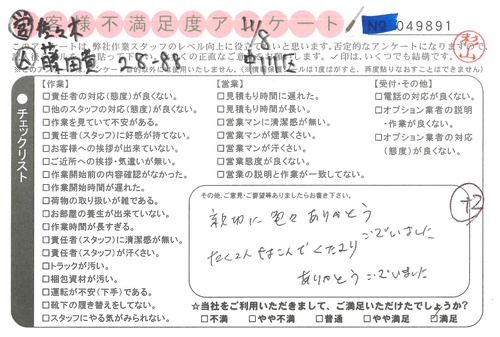 営 佐々木
お客様不満足度アンケート
11/8
No 049891
杉山
このアンケートは、弊社作業スタッフのレベル向上に役立て
否定的なアンケートになりますので、
中川区
2-8-88
【作業】
□責任者の対応(態度)が良くない。
□他のスタッフの対応(態度)が良くない。
□作業を見ていて不安がある。
□責任者(スタッフ)に好感が持てない。
□お客様への挨拶が出来ていない。
□ご近所への挨拶・気遣いが無い。
□作業開始前の内容確認がなかった。
□作業開始時間が遅れた。
□荷物の取り扱いが雑である。
□お部屋の養生が出来ていない。
□作業時間が長すぎる。
□責任者(スタッフ)に清潔感が無い。
□責任者(スタッフ)が汗くさい。
□トラックが汚い。
□梱包資材が汚い。
□運転が不安(下手)である。
□靴下の履き替えをしてない。
□スタッフにやる気がみられない。
チェックリスト
【営業】
□見積もり時間に遅れた。
□見積もり時間が長い。
□営業マンに清潔感が無い。
□営業マンが煙草くさい。
□営業マンが汗くさい。
□営業態度が良くない。
□営業の説明と作業が一致してない。
【受付・その他】
□電話の対応が良くない。
□オプション業者の説明
・作業が良くない。
□オプション業者の対応
(態度)が良くない。
その他、ご意見・ご要望等ありましたらお書き下さい。
+2
親切に色々ありがとう
ございました
たくさんはこんでくださり
ありがとうございました
☆当社をご利用いただきまして、ご満足いただけたでしょうか?
□不満 □やや不満 □普通 □やや満足 ☑満足